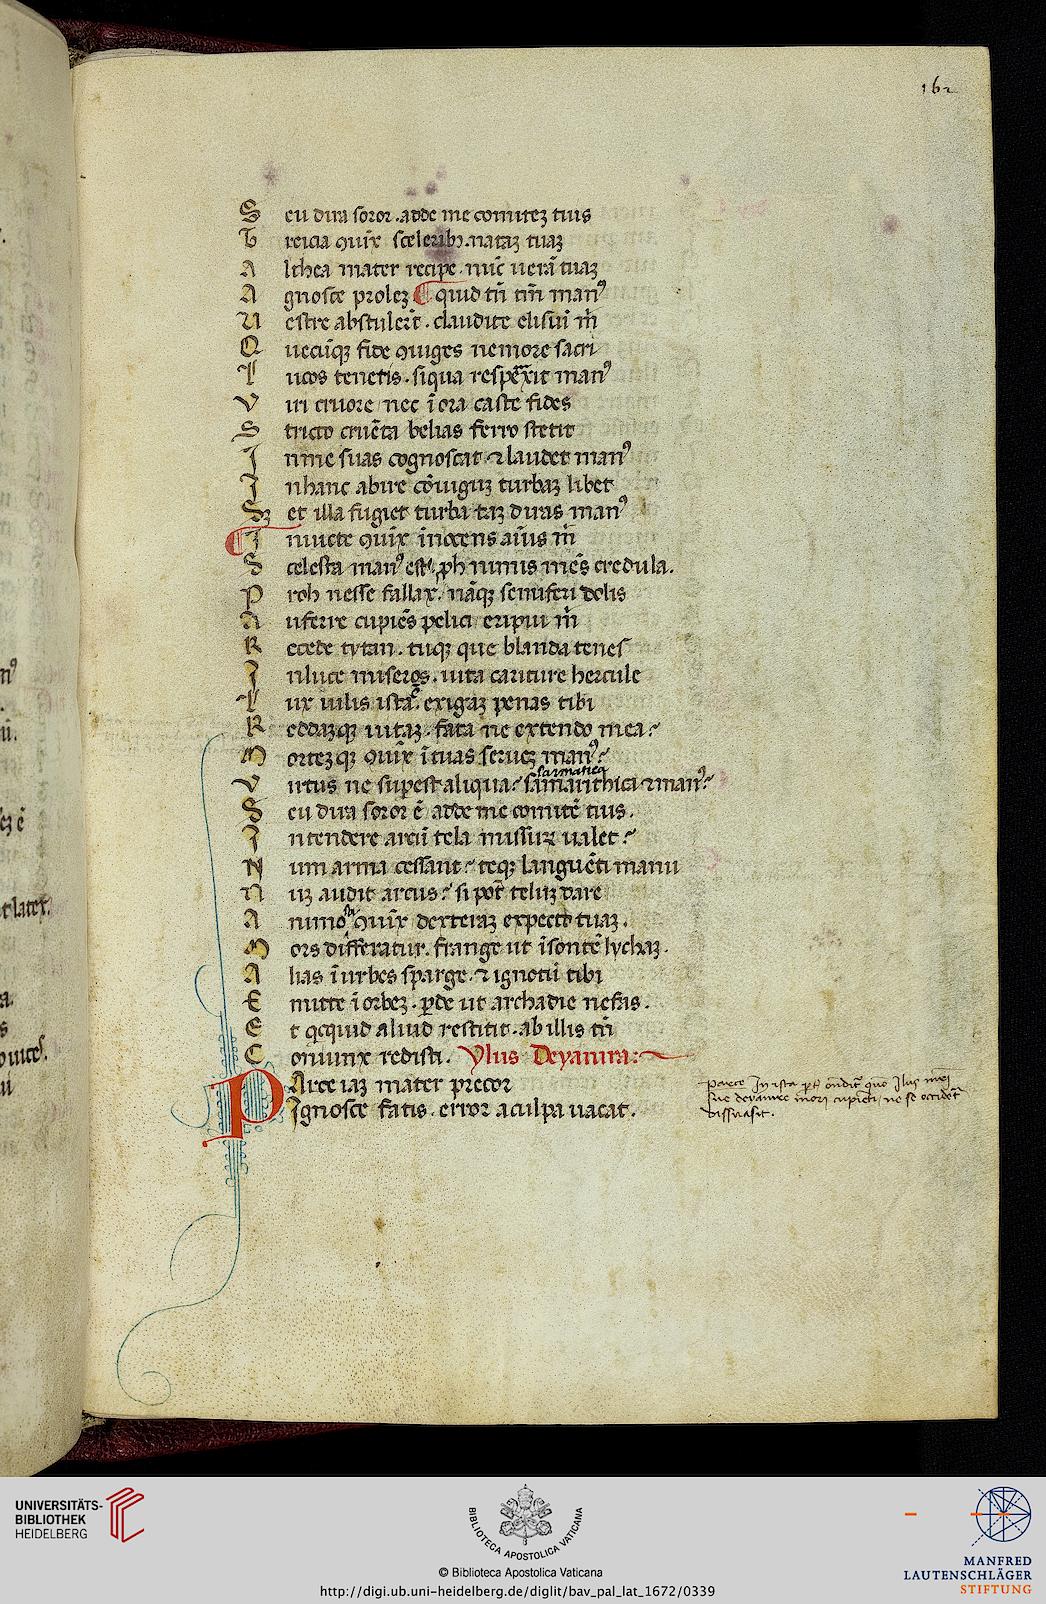 162
Seu dira soror. adde me comitez tuis
Treicia ɔuix sceleribꝫ. nataꝫ tuaꝫ
Althea mater recipe. nūc uerā tuaꝫ
Agnosce prolez ¶ quid tm̄ tm̄ manꝰ
Uestre abstulerīt. claudite elisiū m̄
Quecūqꝫ fide ɔiuges nemore sacri
Lucos tenetis. siqua respexit manꝰ
Viri cruore nec ī ora caste fides
Stricto cruēta belias ferro stetit
Inme suas cognoscat ⁊ laudet manꝰ
Inhanc abire cōiuguꝫ turbaꝫ libet
Sꝫ et illa fugiet turba taꝫ diras manꝰ
¶ Inuicte ɔuix inocens aīus m̄
Scelesta manꝰ est. ꝓh nimis mēs credula.
Proh nesse fallax. nāqꝫ semiferi dolis
Auferre cupiēs pelici eripui m̄
Recede tytan. tuqꝫ que blanda tenes
Inluce miseros. uita cariture hercule
Lux uilis ista ē. exigaꝫ penas tibi
Reddaꝫqꝫ uitaꝫ. fata ne extendo mea?
Mortezqꝫ ɔuīx ī tuas serueꝫ manꝰ?
sarmatica
Virtus ne supest aliqua? samarithici ⁊ manꝰ?
Seu dira soror ē adde me comitē tuis.
Intendere arcū tela missura ualet?
Num arma cessant? teqꝫ languēti manu
Nꝫ audit arcus? si pot̄ teluꝫ dare
Animose ɔuīx dexteraꝫ expecto tuaꝫ.
Mors differatur. frange ut īsontē lychaꝫ.
Alias ī urbes sparge. ⁊ ignotū tibi
Emitte ī orbez. ꝑde ut archadie nefas.
Et qcquid aliud restitit. ab illis tn̄
Coniunx redisti. Ylus Deyanira:
PArce iaꝫ mater precor
Ignosce fatis. error a culpa uacat.
parce In ista ondit quo Ilus mr̄i
sue deyanire mori cupiēti ne se occidet
dissuasit.
UNIVERSITÄTS-
BIBLIOTHEK
HEIDELBERG
BIBLIOTECA APOSTOLICA VATICANA
© Biblioteca Apostolica Vaticana
http://digi.ub.uni-heidelberg.de/diglit/bav_pal_lat_1672/0339
MANFRED
LAUTENSCHLÄGER
STIFTUNG